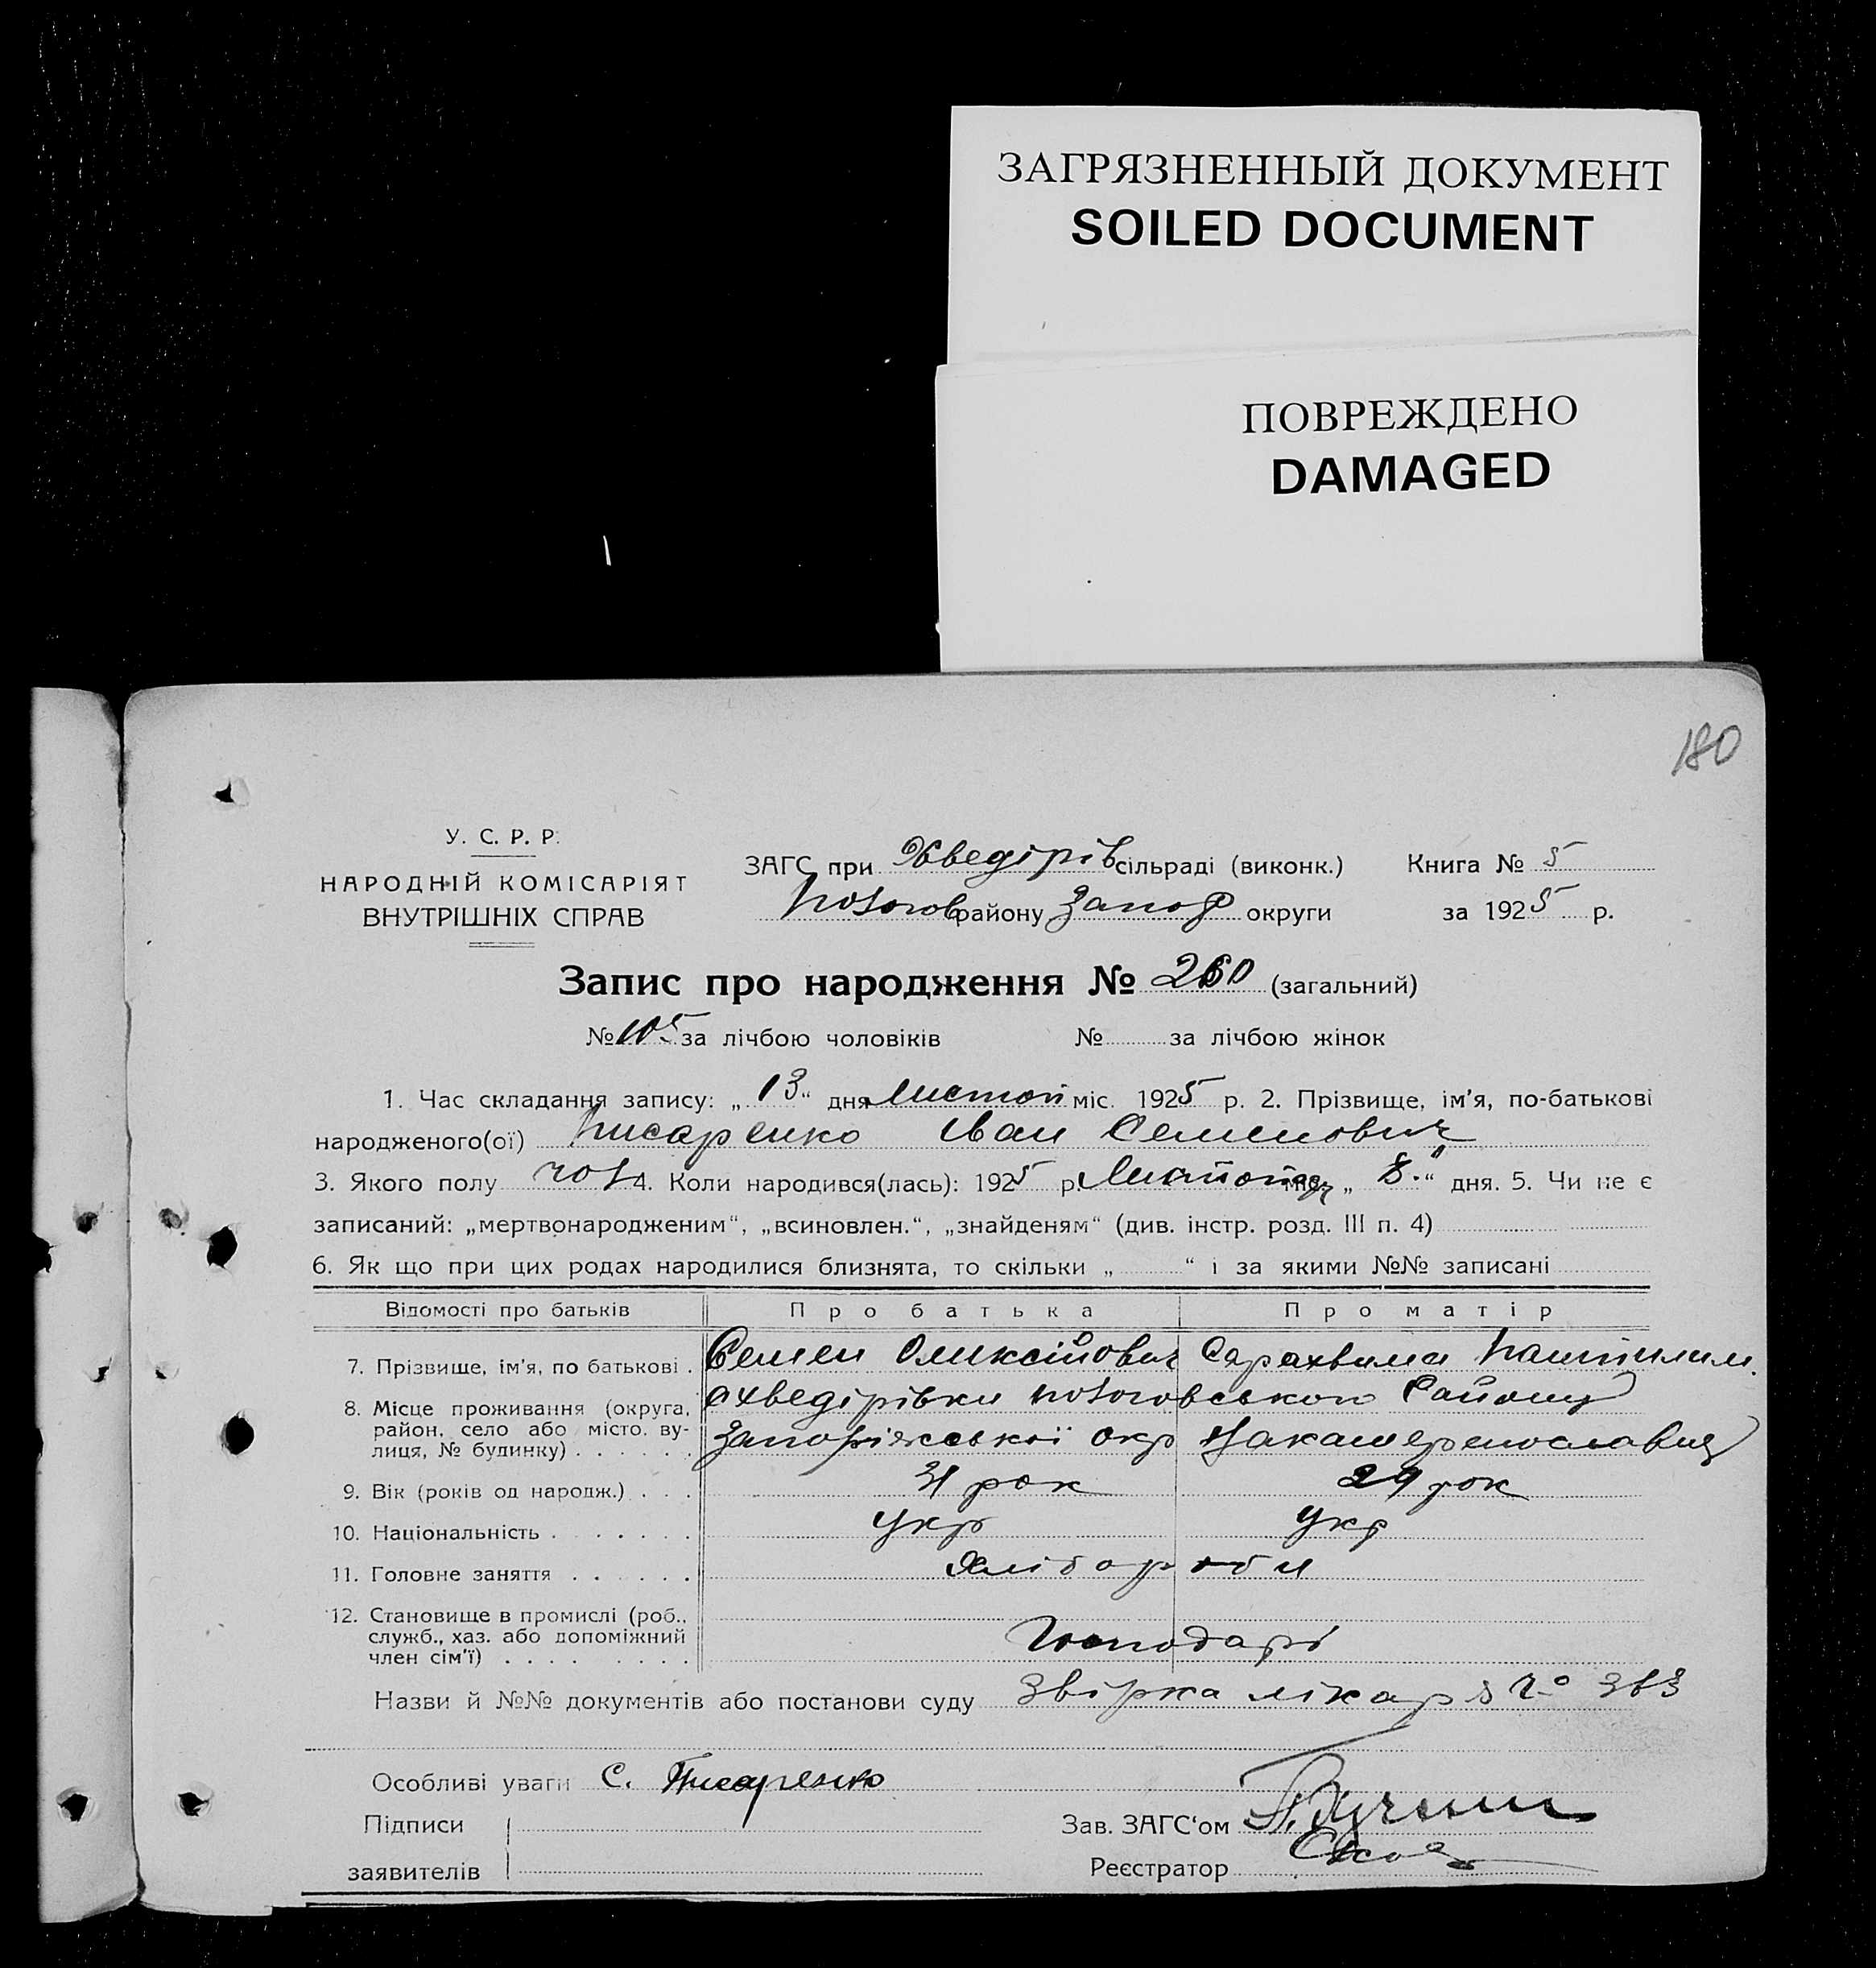 ЗАГРЯЗНЕННЫЙ ДОКУМЕНТ
SOILED DOCUMENT
ПОВРЕЖДЕНО
DAMAGED
180
У. С. Р. Р.
НАРОДНІЙ КОМІСАРІЯТ
ВНУТРІШНІХ СПРАВ
ЗАГС при Хведірів сільраді (виконк.) Книга № 5
району Запор округи за 1925 р.
Запис про народження № 260 (загальний)
№ 105 за лічбою чоловіків № за лічбою жінок
1. Час складання запису: „ 13 “ дня Листоп міс. 1925 р. 2. Прізвище, ім'я, по-батькові
народженого(ої) Писаренко Іван Семенович
3. Якого полу чол 4. Коли народився(лась): 1925 р. міс. „ 8. “ дня. 5. Чи не є
записаний: „мертвонародженим“, „всиновлен.“, „знайденям“ (див. інстр. розд. III п. 4)
6. Як що при цих родах народилися близнята, то скільки „ “ і за якими №№ записані
Відомості про батьків Про батька Про матір
7. Прізвище, ім'я, по батькові . Семен Оликсійович
8. Місце проживання (округа, район, село або місто, ву-лиця, № будинку) . . . . . .
Запоріжської окр
9. Вік (років од народж.) . . . 31 рок 29 рок
10. Національність . . . . . . . Укр Укр
11. Головне заняття . . . . . . Хлібороби
12. Становище в промислі (роб.,
служб., хаз. або допоміжний
член сім'ї) . . . . . . . . Господарі
Назви й №№ документів або постанови суду Звірка лікаря
Особливі уваги С. Писаренко
Підписи
Зав. ЗАГС‘ом
заявителів
Реєстратор